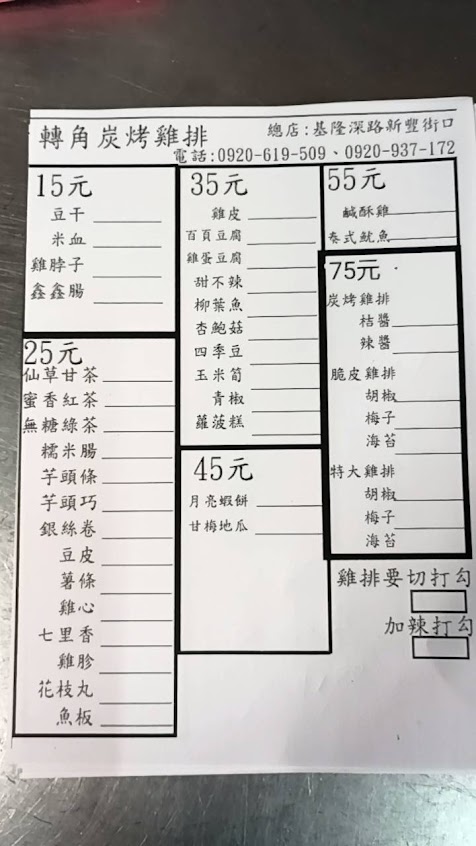 轉角炭烤雞排
總店:基隆深路新豐街口
電話:0920-619-509、0920-937-172
15元
豆干
米血
雞脖子
鑫鑫腸
25元
仙草甘茶
蜜香紅茶
無糖綠茶
糯米腸
芋頭條
芋頭巧
銀絲卷
豆皮
薯條
雞心
七里香
雞胗
花枝丸
魚板
35元
雞皮
百頁豆腐
雞蛋豆腐
甜不辣
柳葉魚
杏鮑菇
四季豆
玉米筍
青椒
蘿菠糕
45元
月亮蝦餅
甘梅地瓜
55元
鹹酥雞
泰式魷魚
75元
炭烤雞排
桔醬
辣醬
脆皮雞排
胡椒
梅子
海苔
特大雞排
胡椒
梅子
海苔
雞排要切打勾
加辣打勾